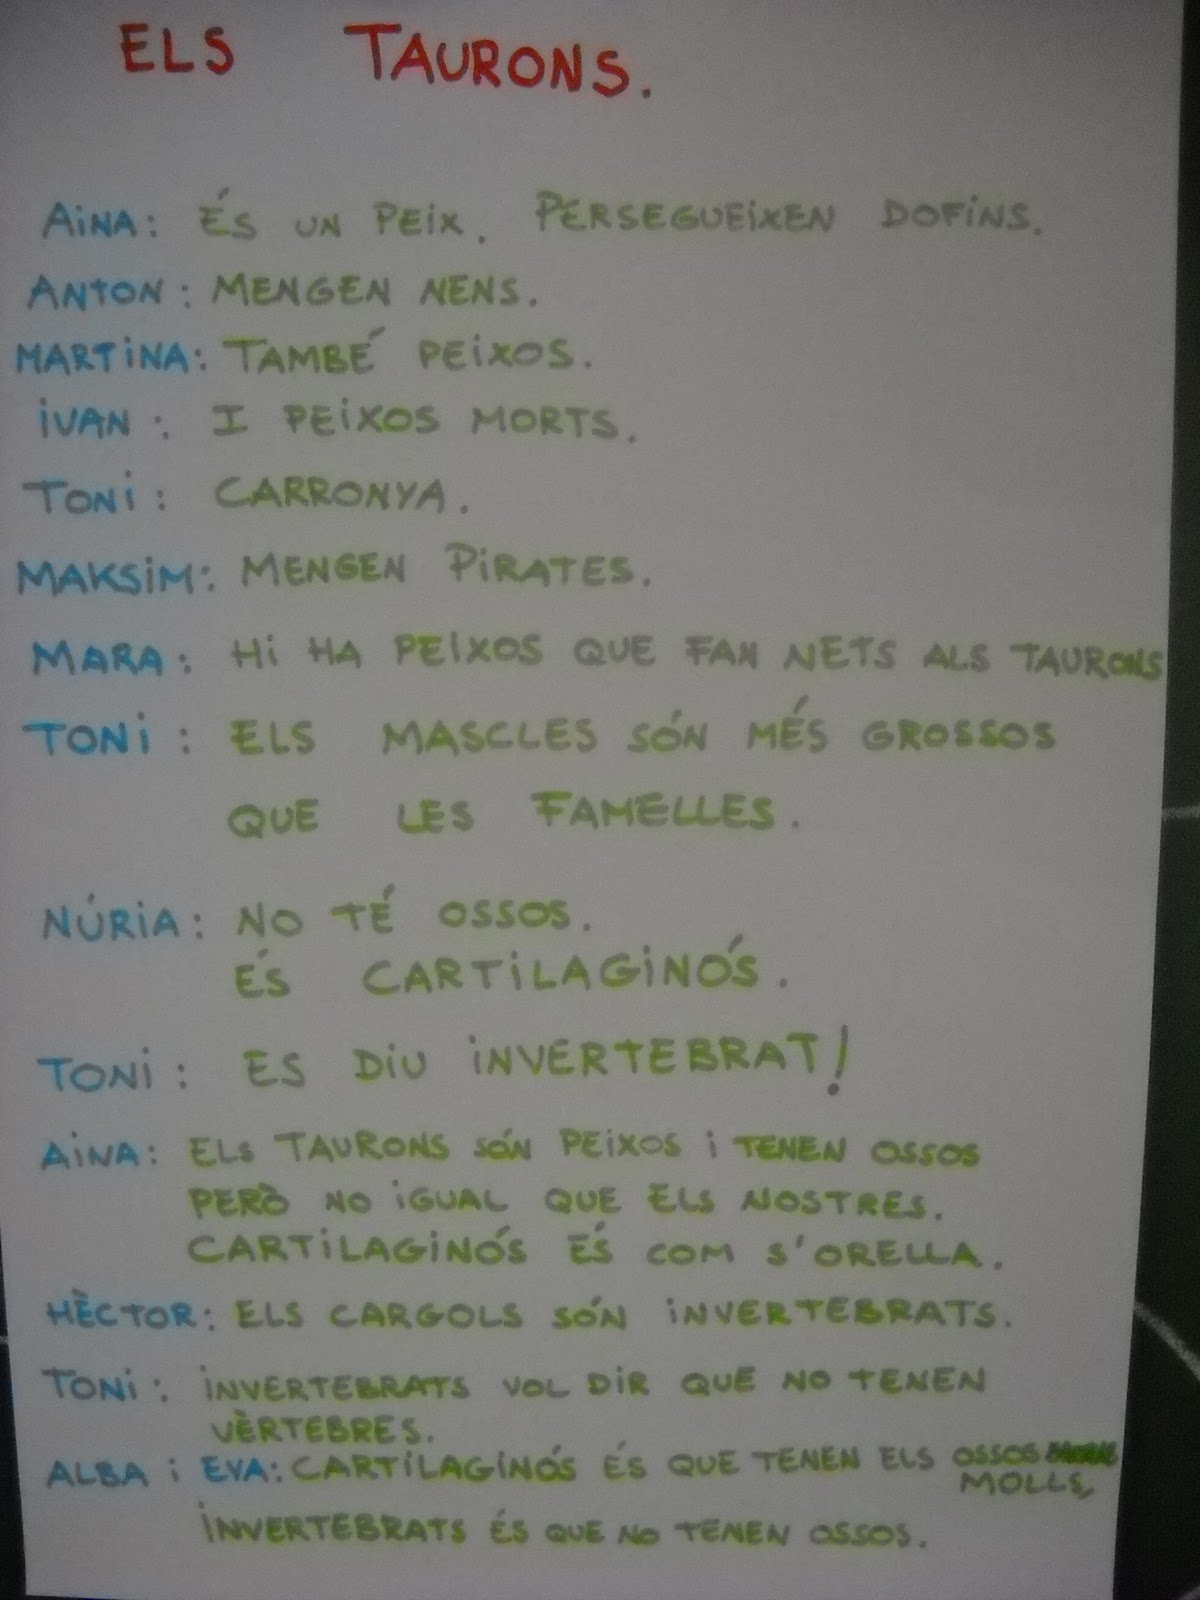 ELS TAURONS.
AINA: ÉS UN PEIX. PERSEGUEIXEN DOFINS.
ANTON: MENGEN NENS.
MARTINA: TAMBÉ PEIXOS.
IVAN: I PEIXOS MORTS.
TONI: CARRONYA.
MAKSIM: MENGEN PIRATES.
MARA: HI HA PEIXOS QUE FAN NETS ALS TAURONS
TONI: ELS MASCLES SÓN MÉS GROSSOS
QUE LES FAMELLES.
NÚRIA: NO TÉ OSSOS.
ÉS CARTILAGINÓS.
TONI: ES DIU INVERTEBRAT!
AINA: ELS TAURONS SÓN PEIXOS I TENEN OSSOS
PERÒ NO IGUAL QUE ELS NOSTRES.
CARTILAGINÓS ÉS COM S'ORELLA.
HÈCTOR: ELS CARGOLS SÓN INVERTEBRATS.
TONI: INVERTEBRATS VOL DIR QUE NO TENEN
VÈRTEBRES.
ALBA I EVA: CARTILAGINÓS ÉS QUE TENEN ELS OSSOS
MOLLS,
INVERTEBRATS ÉS QUE NO TENEN OSSOS.